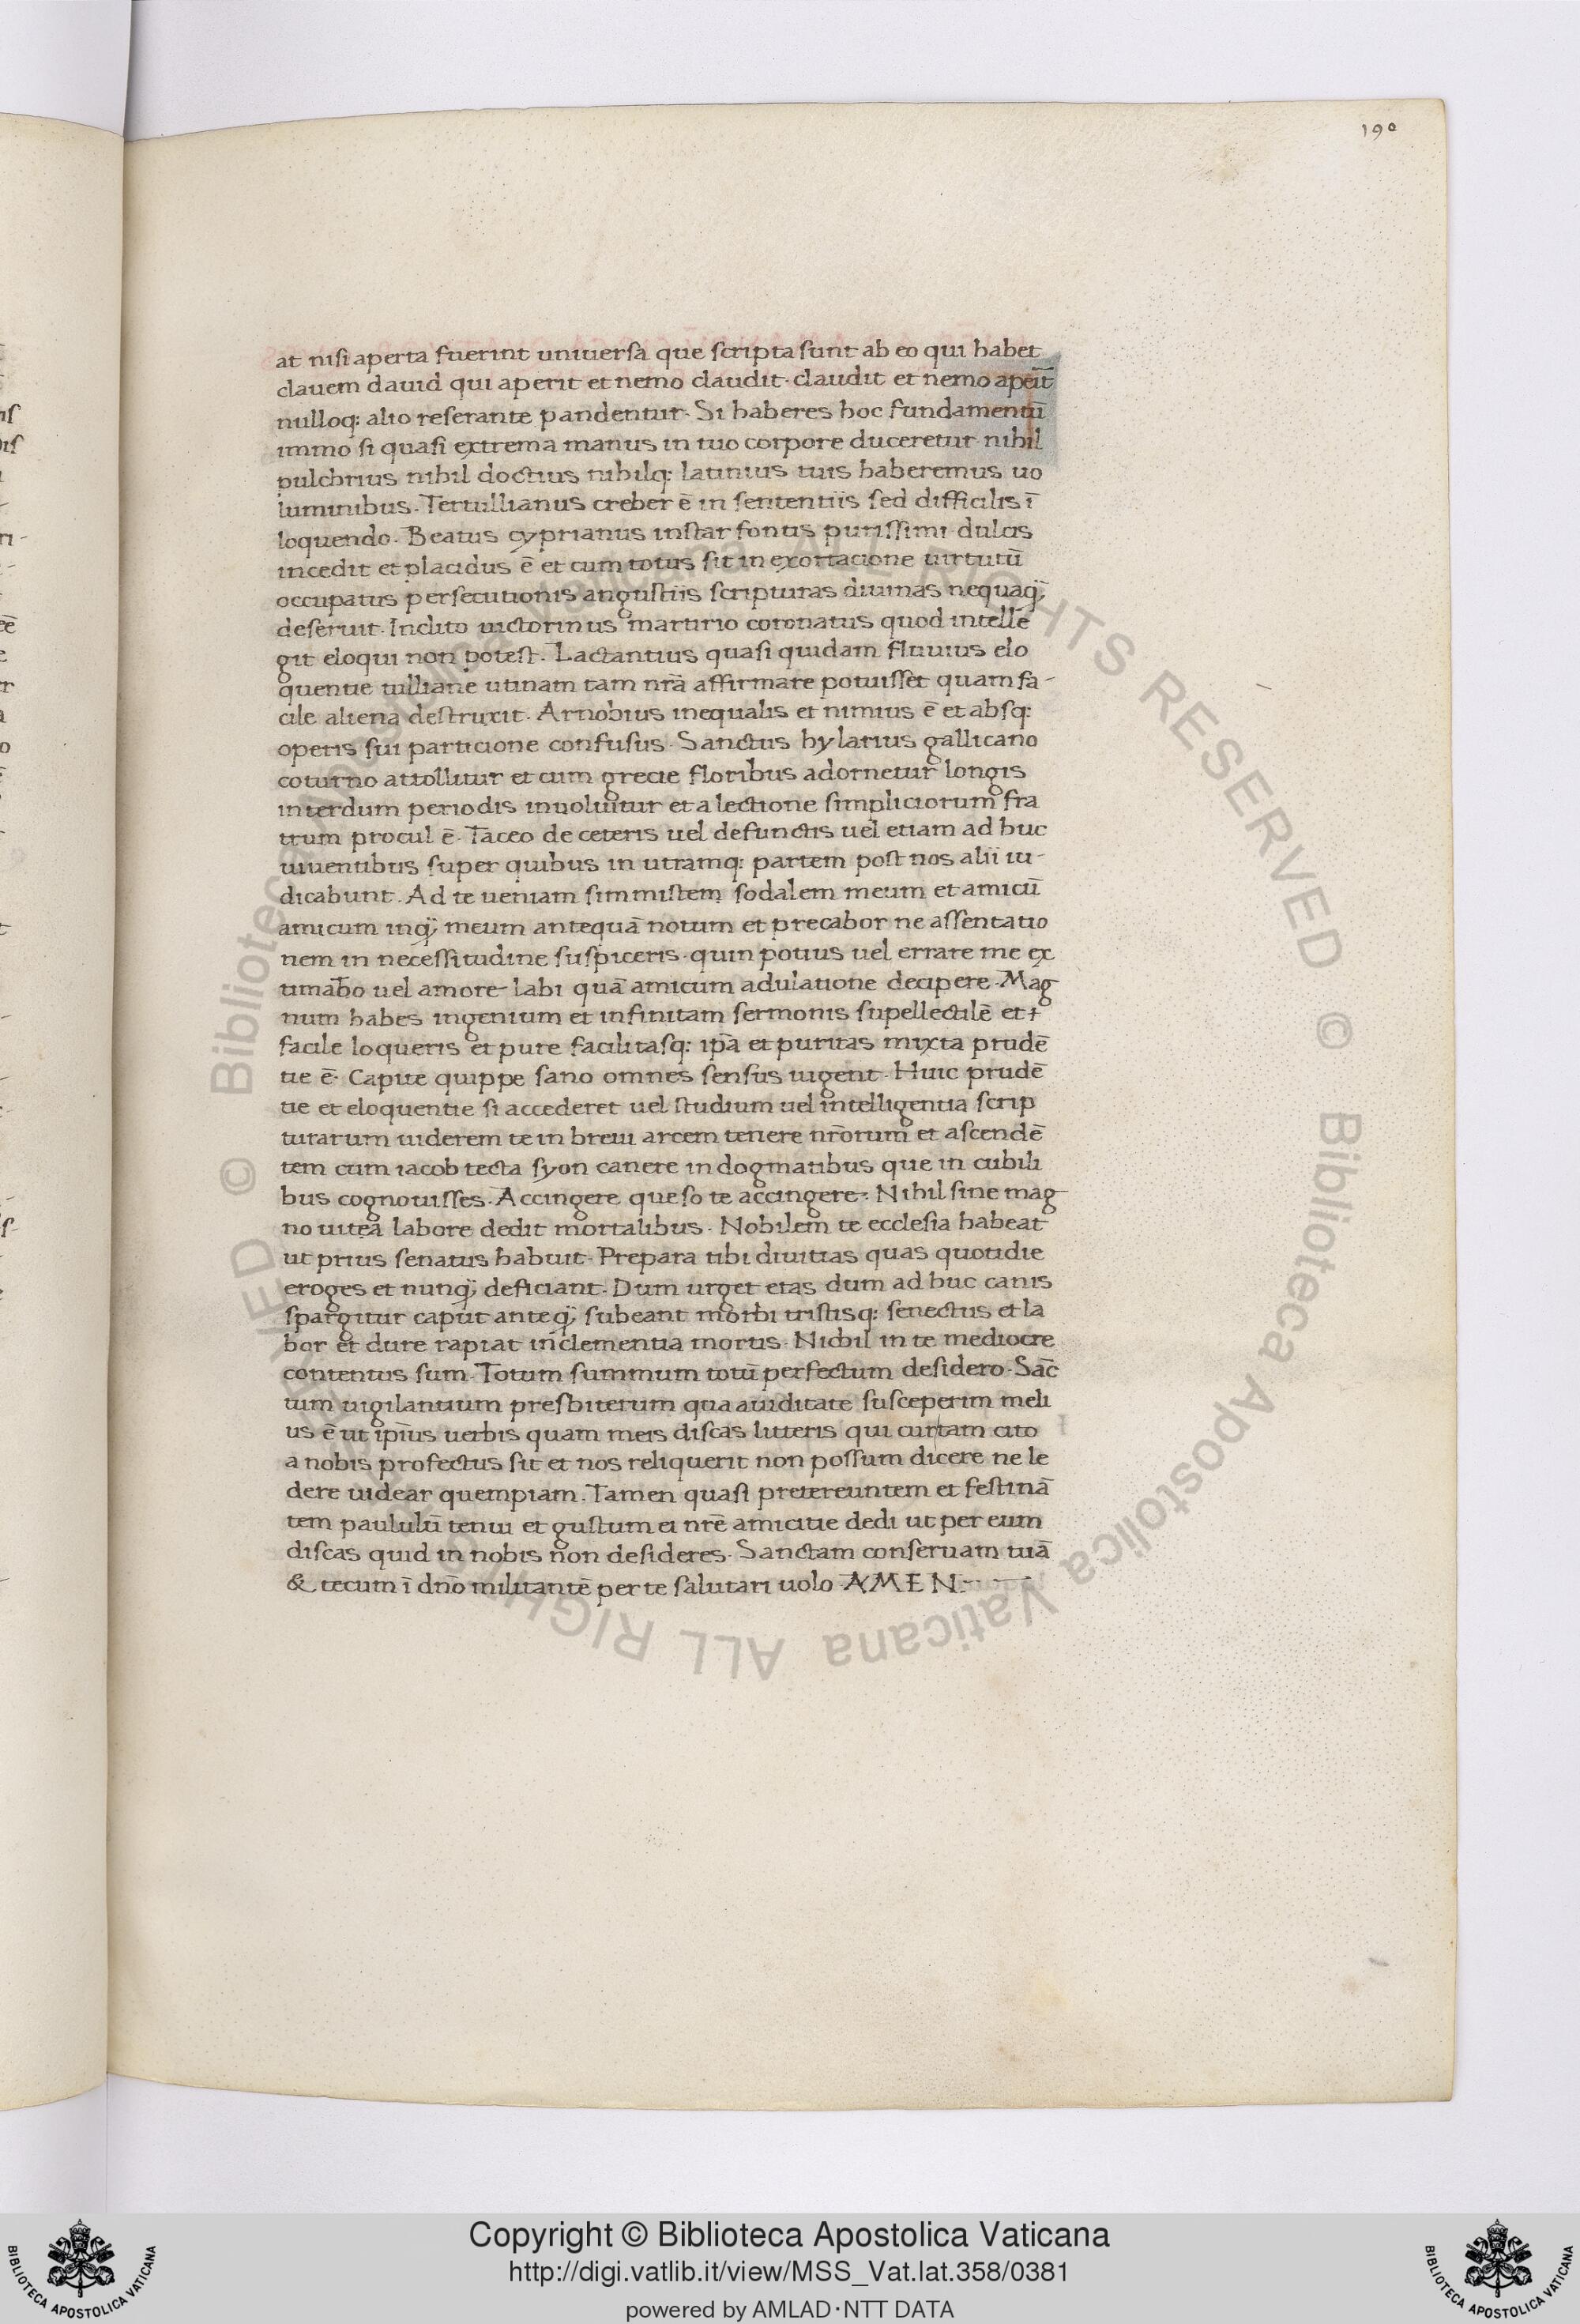 190
at nisi aperta fuerint uniuersa que scripta sunt ab eo qui habet
clauem dauid qui aperit et nemo claudit· claudit et nemo apeit̄
nulloq: alio reserante pandentur· Si haberes hoc fundamentū
immo si quasi extrema manus in tuo corpore duceretur nihil
pulchrius nihil doctius nihilq: latinius tuis haberemus uo
luminibus. Tertullianus creber ē in sententiis sed difficilis ī
loquendo. Beatus cyprianus instar fontis purissimi dulcis
incedit et placidus ē et cum totus sit in exortacione uirtutū
occupatus persecutionis angustiis scripturas diuinas nequaq̃;
deseruit. Inclito uictorinus martirio coronatus quod intelle
git eloqui non potest. Lactantius quasi quidam fluuius elo
quentie tulliane utinam tam nrā affirmare potuisset quam fa-
cile aliena destruxit. Arnobius inequalis et nimius ē et absq:
operis sui particione confusus. Sanctus hylarius gallicano
coturno attollitur et cum grecie floribus adornetur longis
interdum periodis inuoluitur et a lectione simpliciorum fra
trum procul ē. Taceo de ceteris uel defunctis uel etiam ad huc
uiuentibus super quibus in utramq: partem post nos alii iu-
dicabunt. Ad te ueniam simmistem sodalem meum et amicū
amicum inq̃; meum antequā notum et precabor ne assentatio
nem in necessitudine suspiceris· quin potius uel errare me ex
timabo uel amore labi quā amicum adulatione decipere. Mag
num habes ingenium et infinitam sermonis supellectilē et
facile loqueris et pure facilitasq: ipā et puritas mixta prudē
tie ē. Capite quippe sano omnes sensus uigent. Huic prudē
tie et eloquentie si accederet uel studium uel intelligentia scrip
turarum uiderem te in breui arcem tenere nrōrum et ascendē
tem cum iacob tecta syon canere in dogmatibus que in cubili
bus cognouisses. Accingere queso te accingere: Nihil sine mag
no uitea labore dedit mortalibus. Nobilem te ecclesia habeat
ut prius senatus habuit. Prepara tibi diuitias quas quotidie
eroges et nunq̃; deficiant. Dum urget etas dum ad huc canis
spargitur caput anteq̃; subeant morbi tristisq: senectus et la
bor et dure rapiat inclementia mortis. Nichil in te mediocre
contentus sum. Totum summum totū perfectum desidero. Sāc
tum uigilantium presbiterum qua auiditate susceperim meli
us ē ut ipīus uerbis quam meis discas litteris qui cur tam cito
a nobis profectus sit et nos reliquerit non possum dicere ne le
dere uidear quempiam. Tamen quasi pretereuntem et festinā
tem paululū tenui et gustum ei nrē amicitie dedi ut per eum
discas quid in nobis non desideres. Sanctam conseruam tuā
& tecum ī dnō militantē per te salutari uolo AMEN
© Biblioteca Apostolica Vaticana ALL RIGHTS RESERVED
© Biblioteca Apostolica Vaticana ALL RIGHTS RESERVED
Copyright © Biblioteca Apostolica Vaticana
http://digi.vatlib.it/view/MSS_Vat.lat.358/0381
powered by AMLAD·NTT DATA
BIBLIOTECA APOSTOLICA VATICANA
BIBLIOTECA APOSTOLICA VATICANA